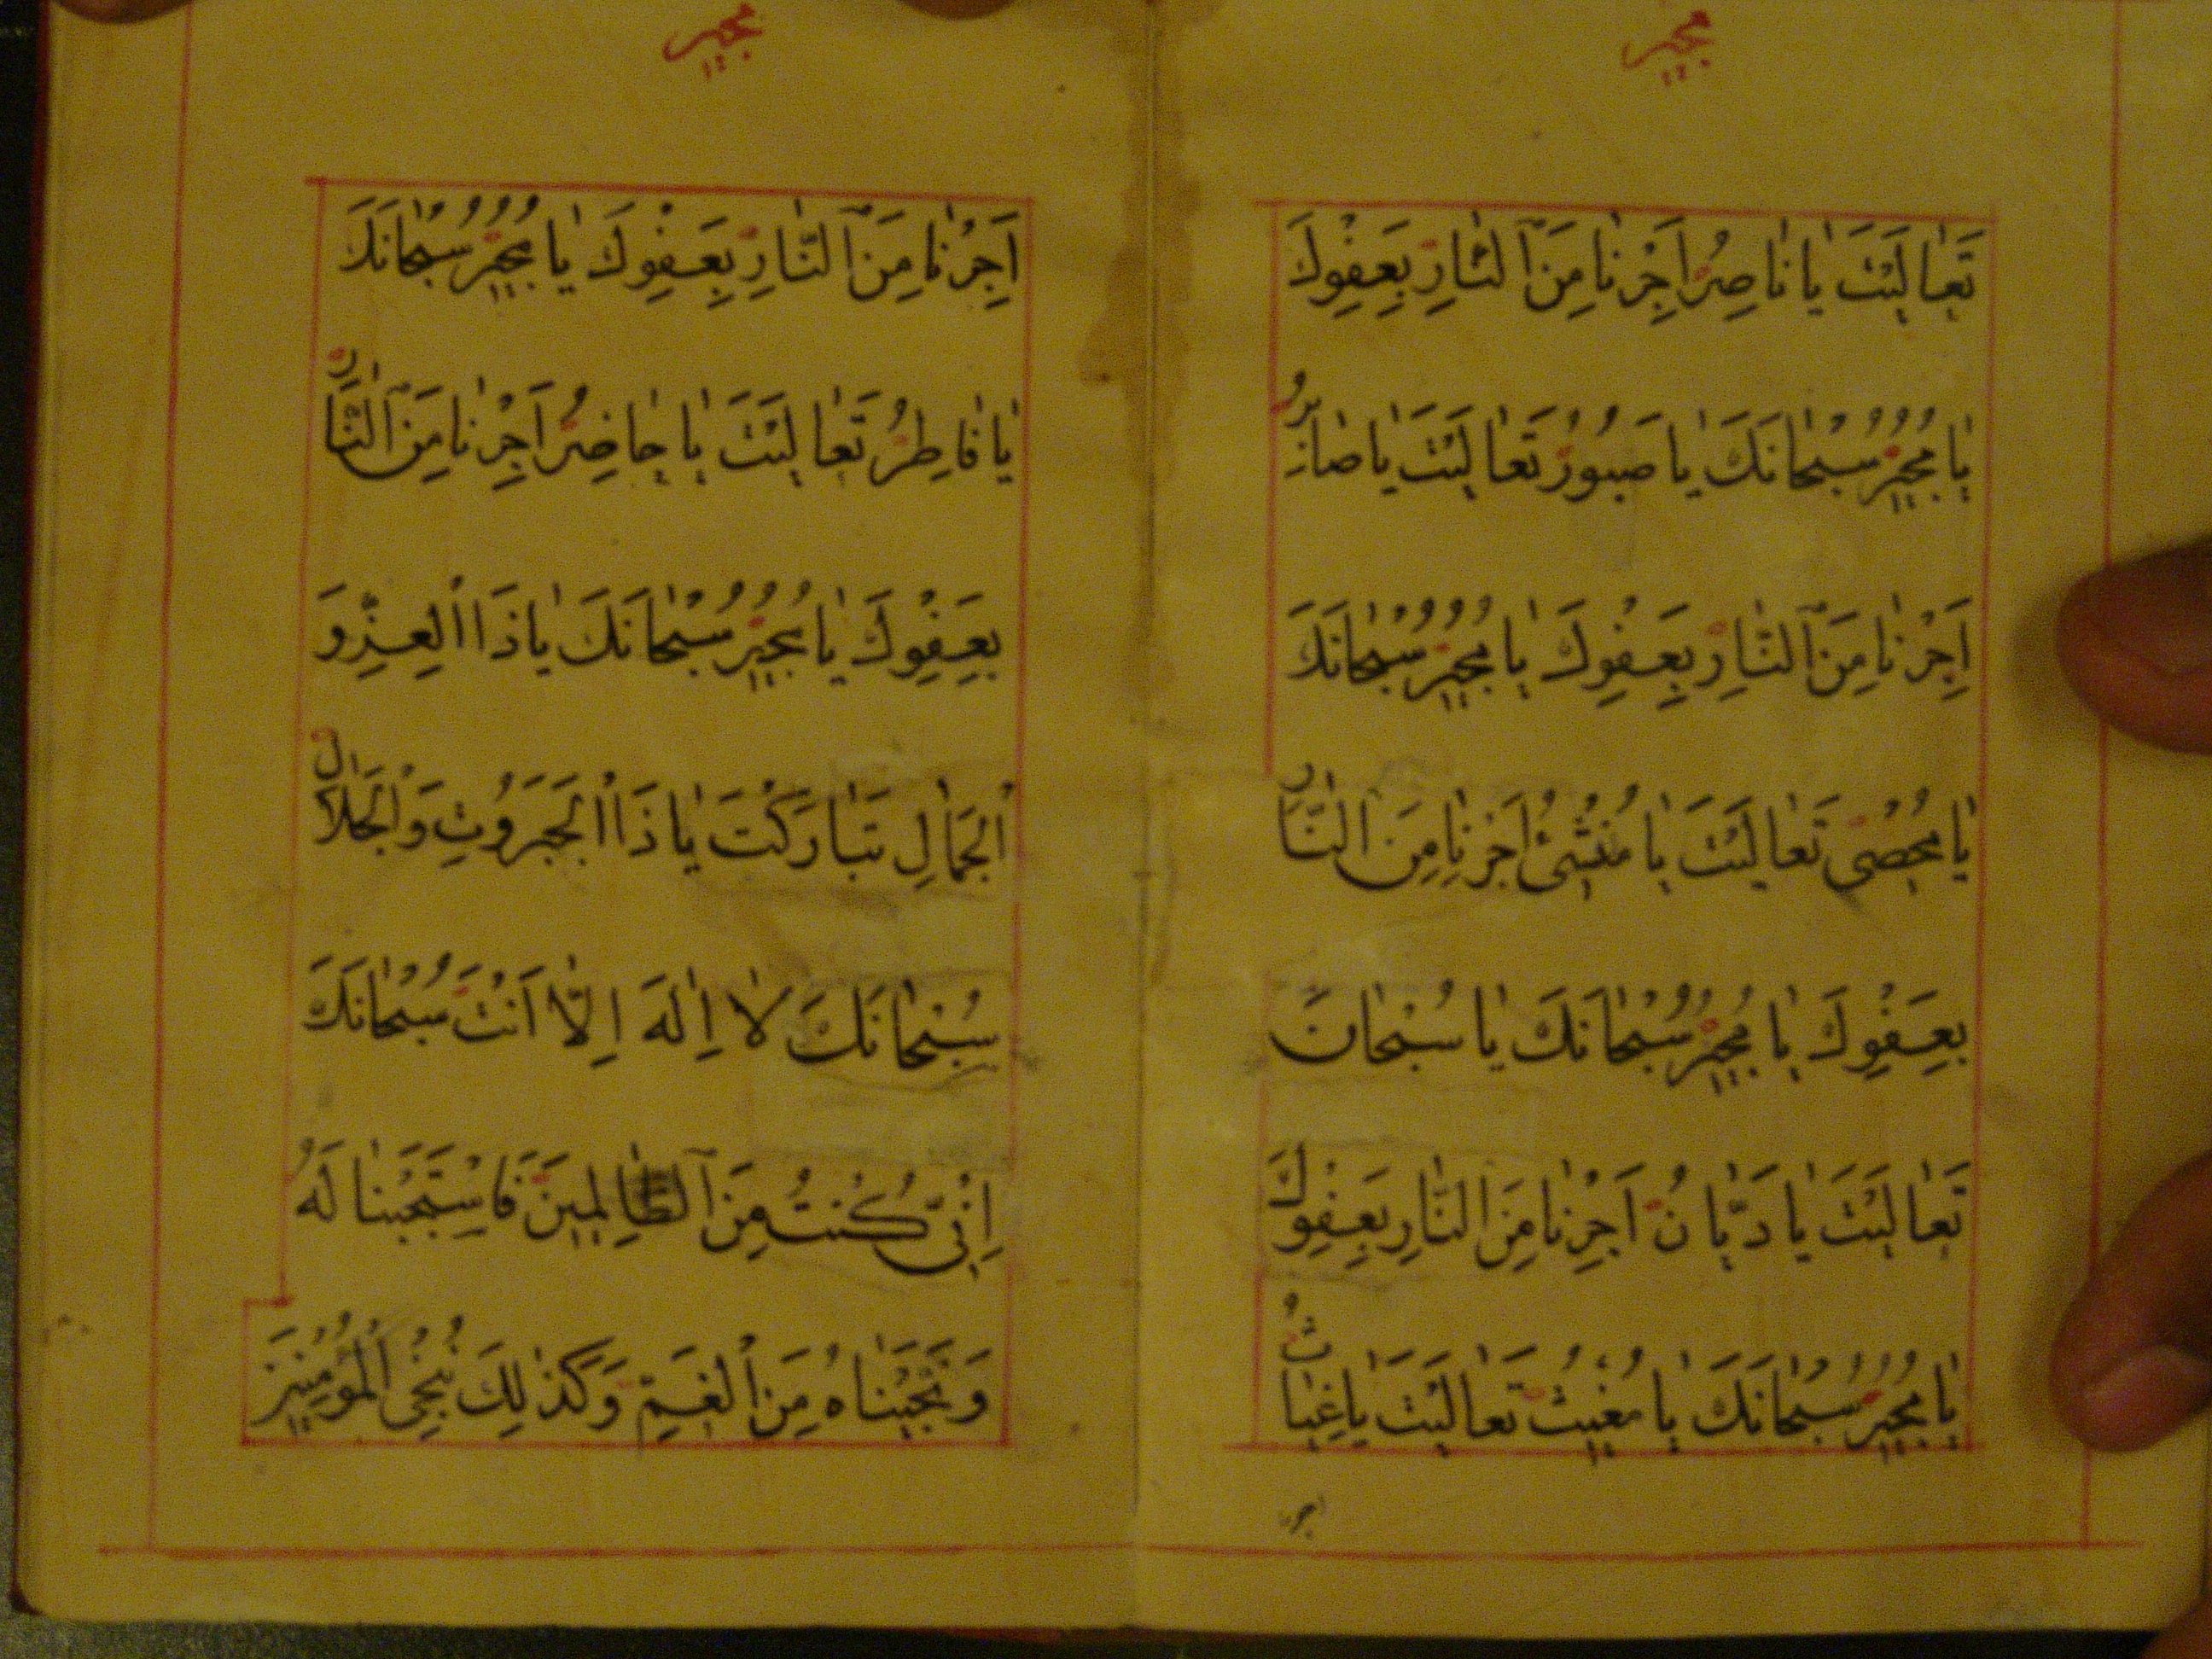 مجير
تَعٰالَیْتَ یٰا نٰاصِرُ اَجِرْنٰا مِنَ النّٰارِ بِعَفْوِكَ
یٰا مُجیٖرُ سُبْحٰانَكَ یٰا صَبُورُ تَعٰالَیْتَ یٰا صٰابِرُ
اَجِرْنٰا مِنَ النّٰارِ بِعَفْوِكَ یٰا مُجیٖرُ سُبْحٰانَكَ
یٰا مُحْصٖی تَعٰالَیْتَ یٰا مُنْشِیُٔ اَجِرْنٰا مِنَ النّٰارِ
بِعَفْوِكَ یٰا مُجیٖرُ سُبْحٰانَكَ یٰا سُبْحٰانَ
تَعٰالَیْتَ یٰا دَیّٰانُ اَجِرْنٰا مِنَ النّٰارِ بِعَفْوِكَ
یٰا مُجیٖرُ سُبْحٰانَكَ یٰا مُغیٖثُ تَعٰالَیْتَ یٰا غِیٰاثُ
اجرنا
مجير
اَجِرْنٰا مِنَ النّٰارِ بِعَفْوِكَ یٰا مُجیٖرُ سُبْحٰانَكَ
یٰا فٰاطِرُ تَعٰالَیْتَ یٰا حٰاضِرُ اَجِرْنٰا مِنَ النّٰارِ
بِعَفْوِكَ یٰا مُجیٖرُ سُبْحٰانَكَ یٰا ذَا الْعِزِّ وَ
الْجَمٰالِ تَبٰارَكْتَ یٰا ذَا الْجَبَرُوتِ وَالْجَلٰالِ
سُبْحٰانَكَ لٰا اِلٰهَ اِلّٰا اَنْتَ سُبْحٰانَكَ
اِنّیٖ كُنْتُ مِنَ الظّٰالِمیٖنَ فَاسْتَجَبْنٰا لَهُ
وَنَجَّیْنٰاهُ مِنَ الْغَمِّ وَكَذٰلِكَ نُنْجِی الْمُؤْمِنیٖنَ